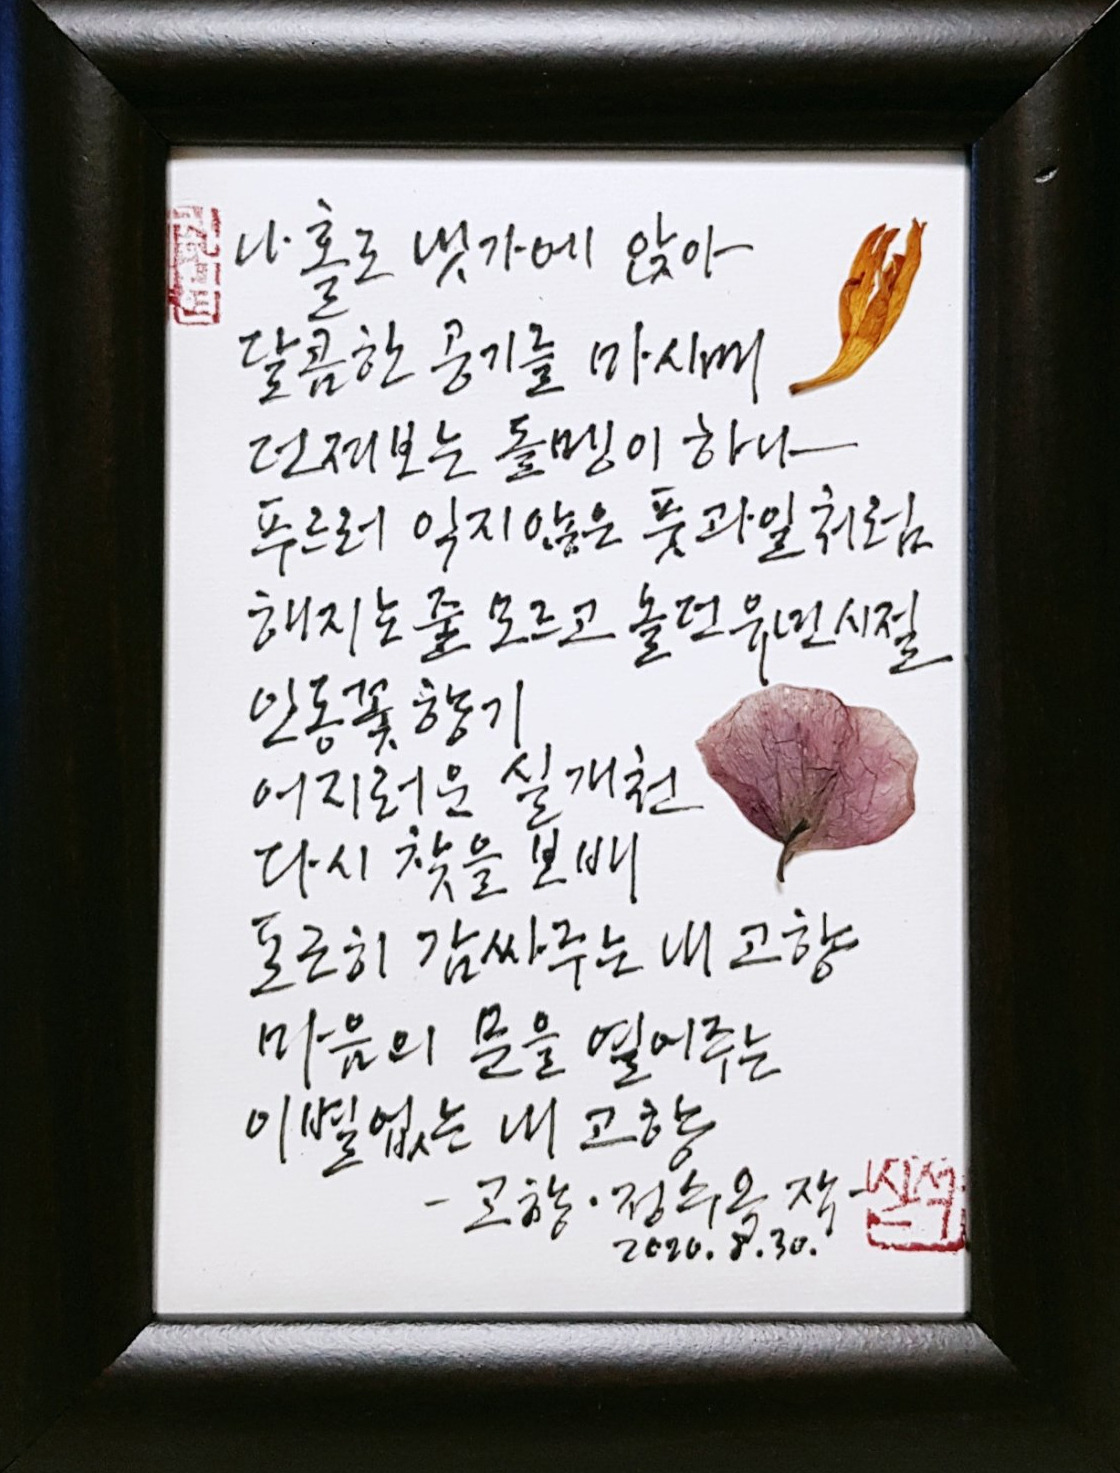 나 홀로 냇가에 앉아
달콤한 공기를 마시며
던져보는 돌멩이 하나
푸르러 익지않은 풋과일처럼
해지는줄 모르고 놀던 유년시절
인동꽃 향기
어지러운 실개천
다시 찾을 보배
포근히 감싸주는 내 고향
마음의 문을 열어주는
이별없는 내 고향
- 고향 · 정수옥 작 -
2020. 8. 30.